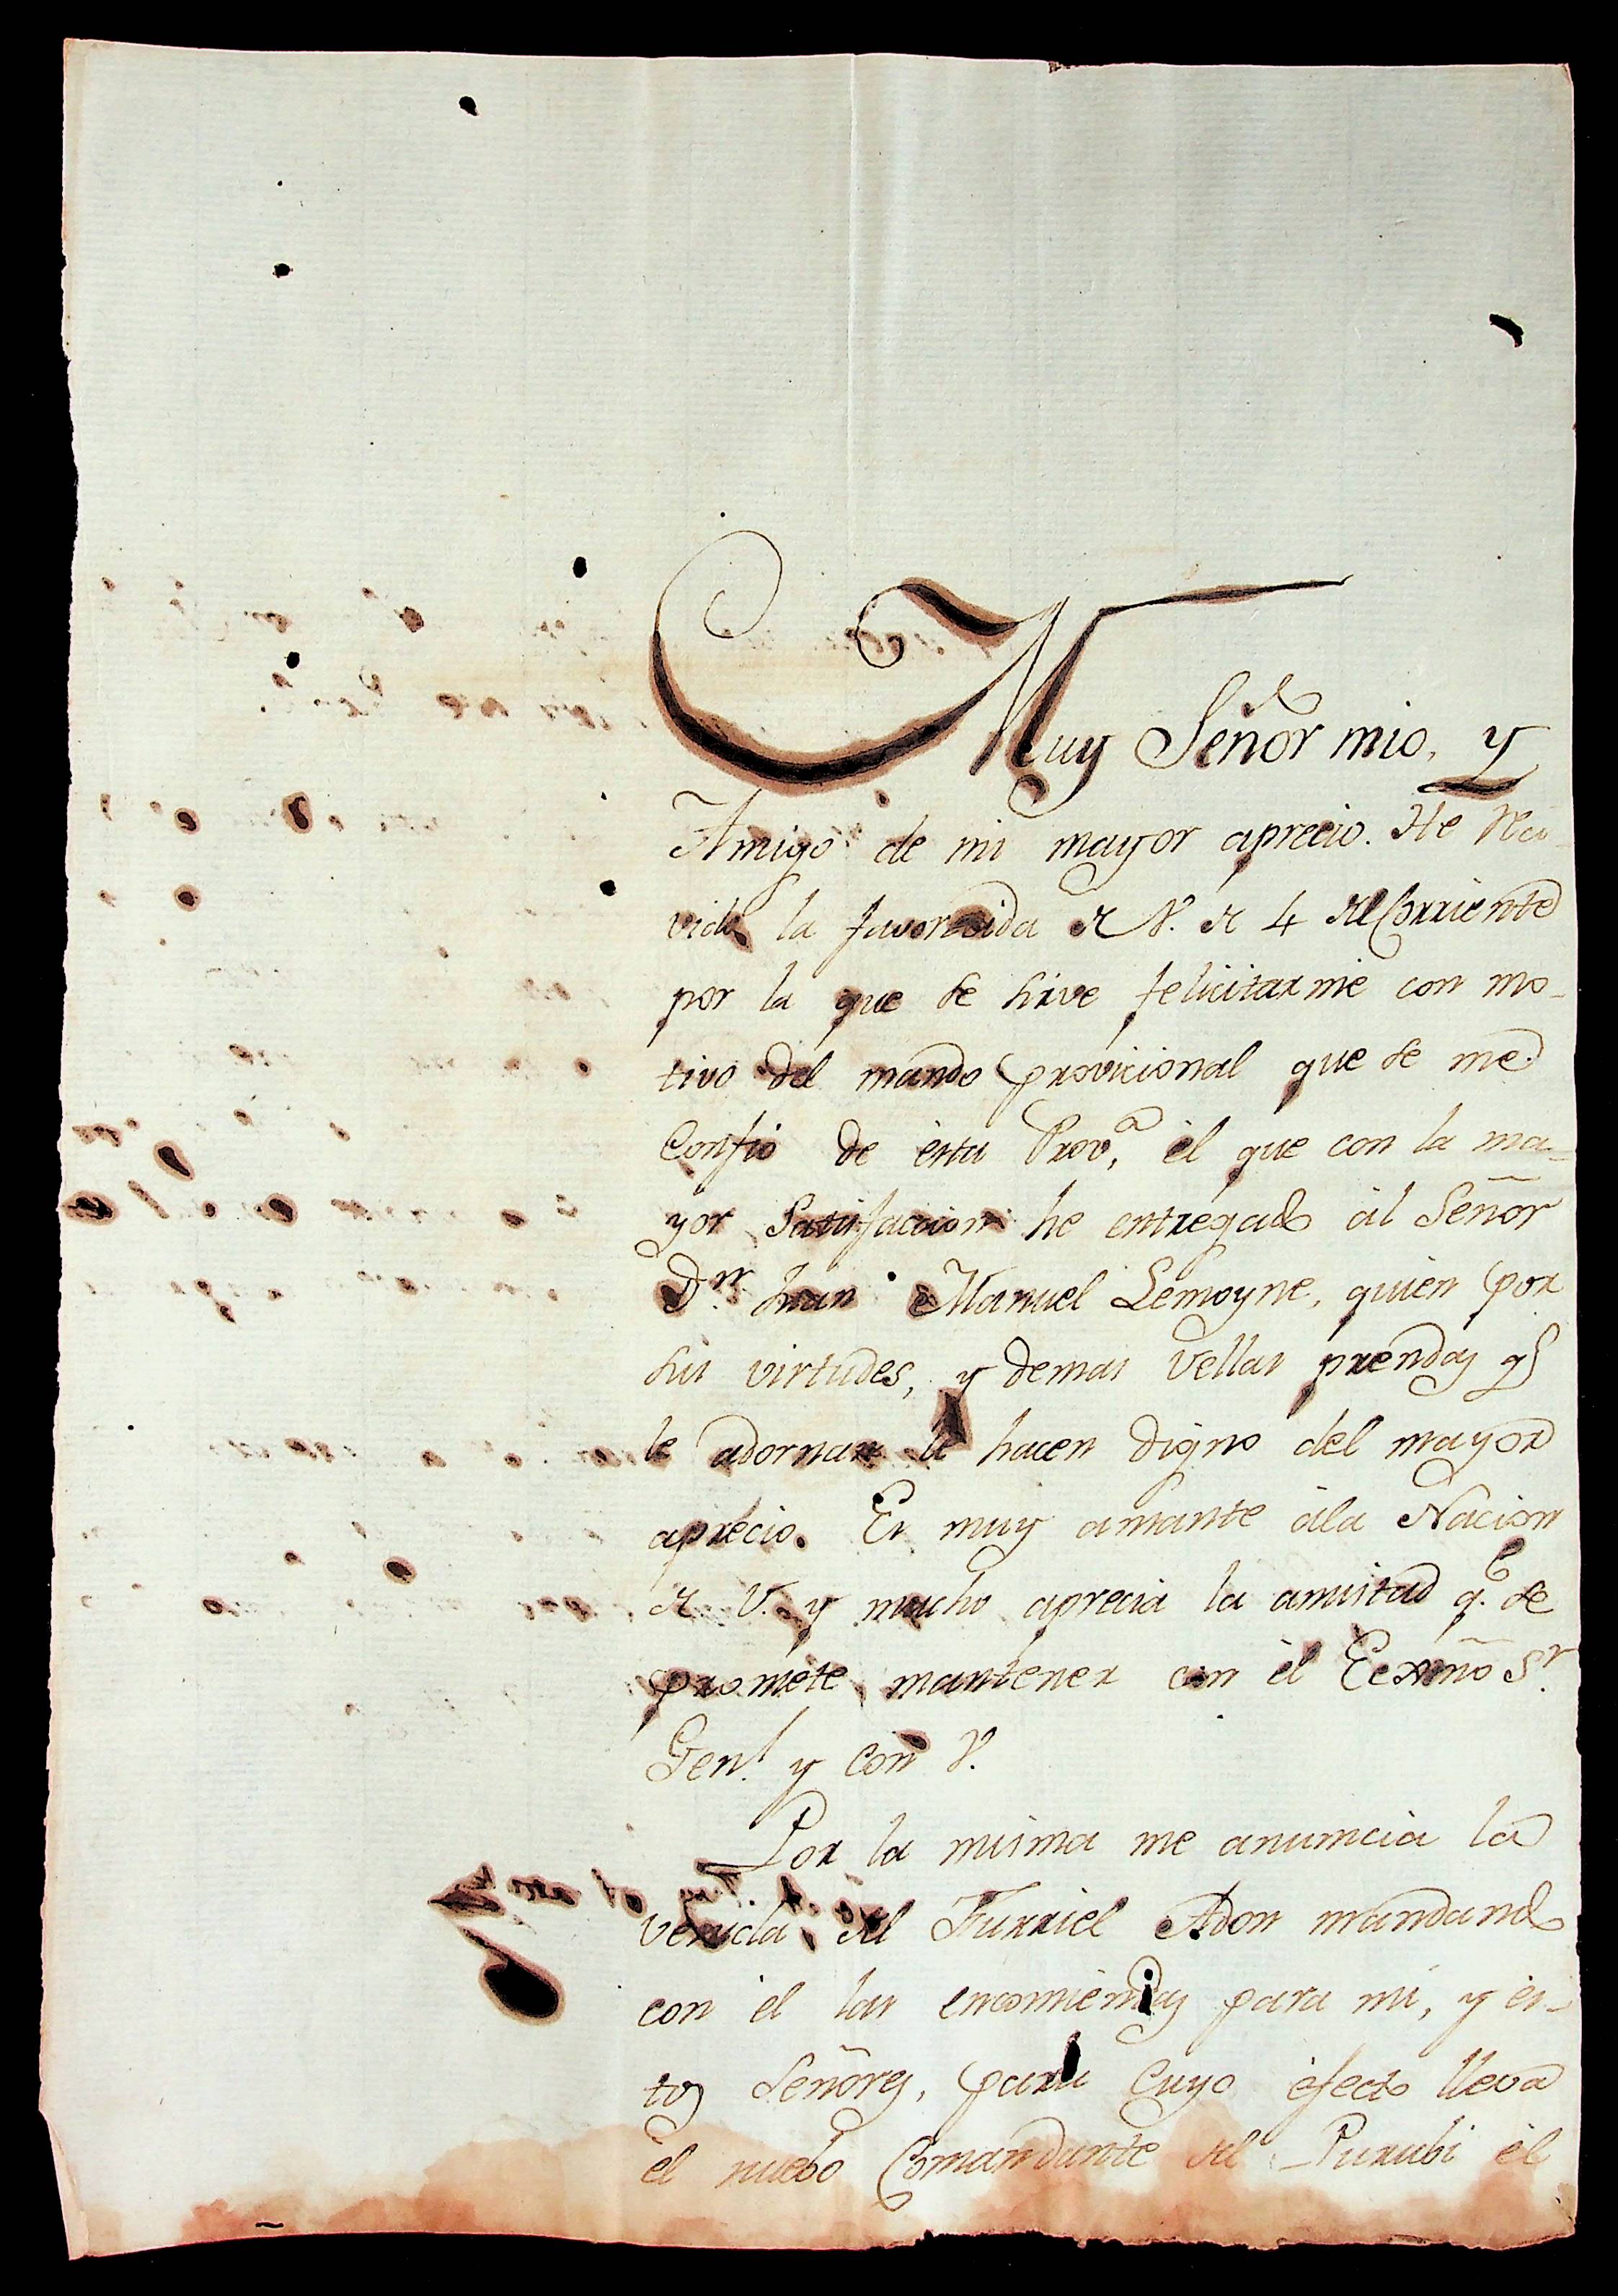 Muy Señor mio, y
Amigo de mi mayor aprecio. He Re-
vido la favorecida de V. de 4 del Corriente
por la que se sirve felicitarme con mo-
tivo del mando provicional que se me
Confio de èsta Prov.ª, èl que con la ma-
yor Satisfaccion he entregado àl Señor
D.n Juan Manuel Lemoyne, quien por
sus virtudes, y demas vellas prendas q.e
le adornan le hacen digno del mayor
aprecio. Es muy amante àla Nacion
de V. y mucho aprecia la amistad q.e se
promete mantener con èl Ecxmõ S.r
Gen.l y con V.
Por la misma me anuncia la
venida del Furriel Adon mandando
con el las encomiendas para mi, y es-
tos Señores, para Cuyo èfecto lleva
èl nuebo Comandante del Purubi èl